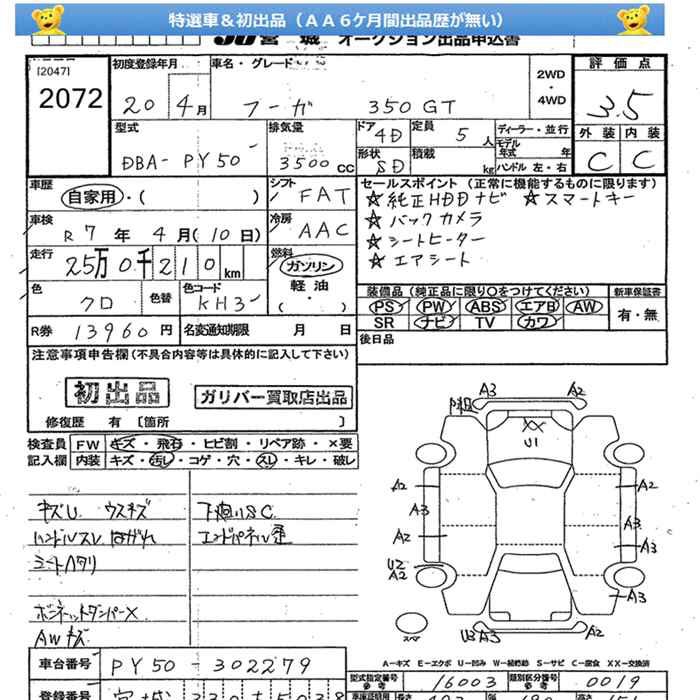 特選車＆初出品（ＡＡ６ケ月間出品歴が無い）
宮城 オークション出品申込書
[2047]
2072
初度登録年月
20年 4月
車名・グレード
フーガ 350GT
2WD
・
4WD
評価点
3.5
外装 内装
C C
型式
DBA-PY50
排気量
3500 CC
ドア
4D
定員
5人
形状
SD
積載
kg
ディーラー・並行
モデル年式 年
ハンドル 左・右
車歴
自家用・( )
シフト
FAT
車検
R7年 4月(10日)
冷房
AAC
走行
25万0千210km
燃料
ガソリン
軽油
・( )
色
クロ
色替
色コード
KH3
R券 13960円
名変通知期限 月 日
セールスポイント（正常に機能するものに限ります）
☆純正HDDナビ ☆スマートキー
☆バックカメラ
☆シートヒーター
☆エアシート
装備品（純正品に限り○をつけてください）
PS PW ABS エアB AW
SR ナビ TV カワ
新車保証書
有・無
後日品
注意事項申告欄（不具合内容等は具体的に記入して下さい）
初出品
ガリバー買取店出品
修復歴 有 〔箇所 〕
検査員
記入欄
FW キズ・飛石・ヒビ割・リペア跡・×要
内装 キズ・汚し・コゲ・穴・スレ・キレ・破し
キズU ウスキズ
ハンドルスレ はがれ
シートヘタリ
ボンネットダンパーX
AWキズ
下廻りSC
エンドパネル歪
A3 A2
XX
U1
A2 A2
A3 A3
A2 A3
U2
A2
A3
スペア
U3 A3
A-キズ E-エクボ U-凹み W-補修跡 S-サビ C-腐食 XX-交換済
車台番号 PY50-302279
型式指定番号 16003
類別区分番号 0019
登録番号